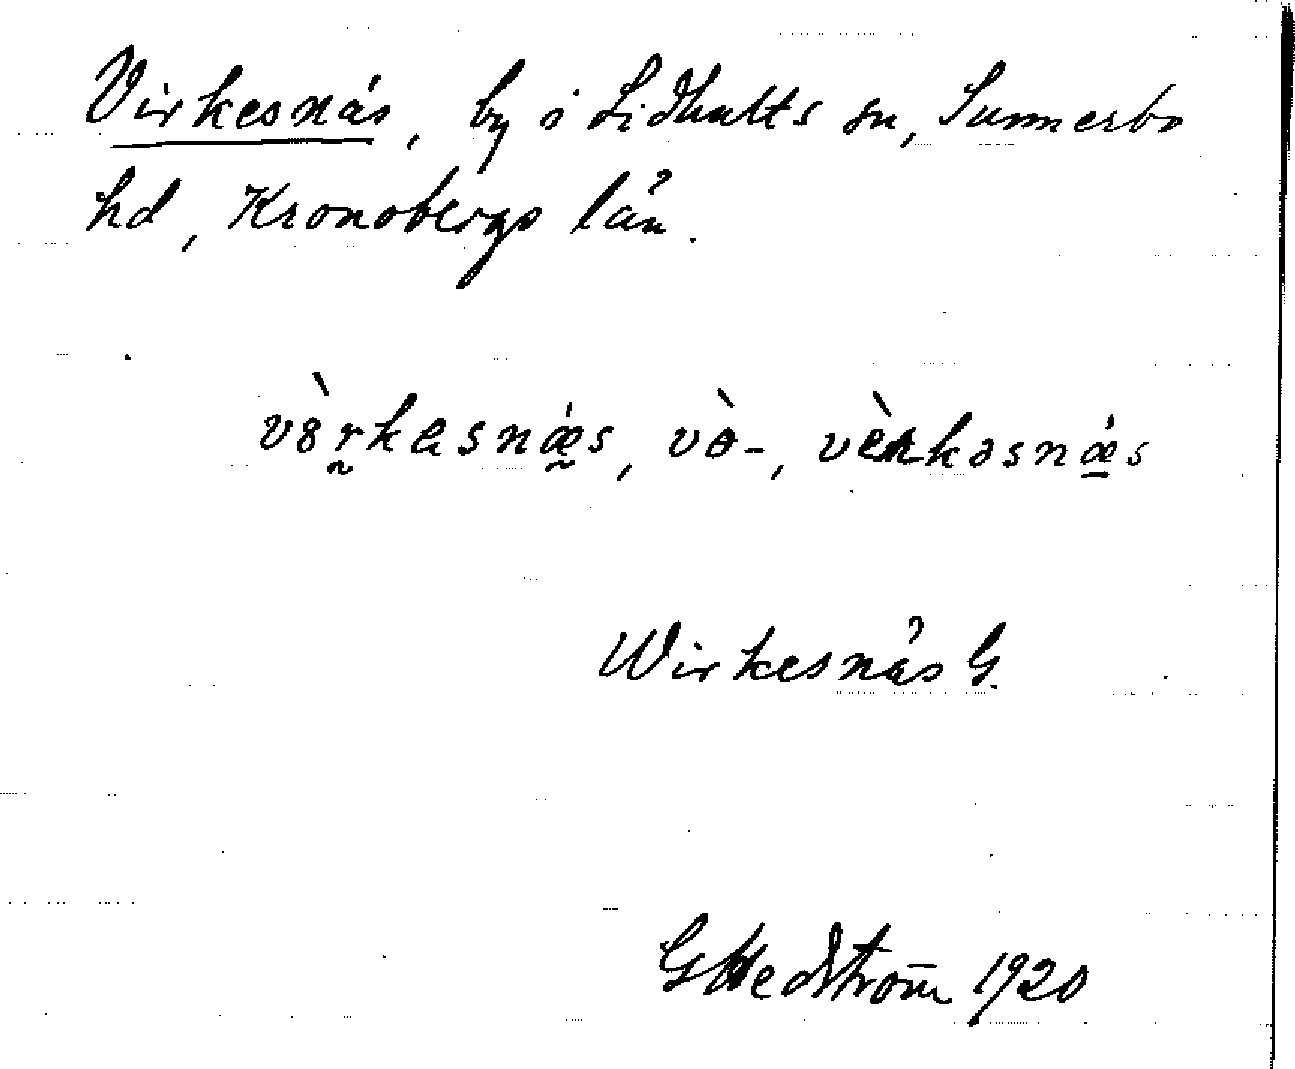 Virkesnäs, by i Lidhults sn, Sunnerbo
hd, Kronobergs län.
vèrkəsnǽs
Wirkesnäs G.
G Hedström 1920